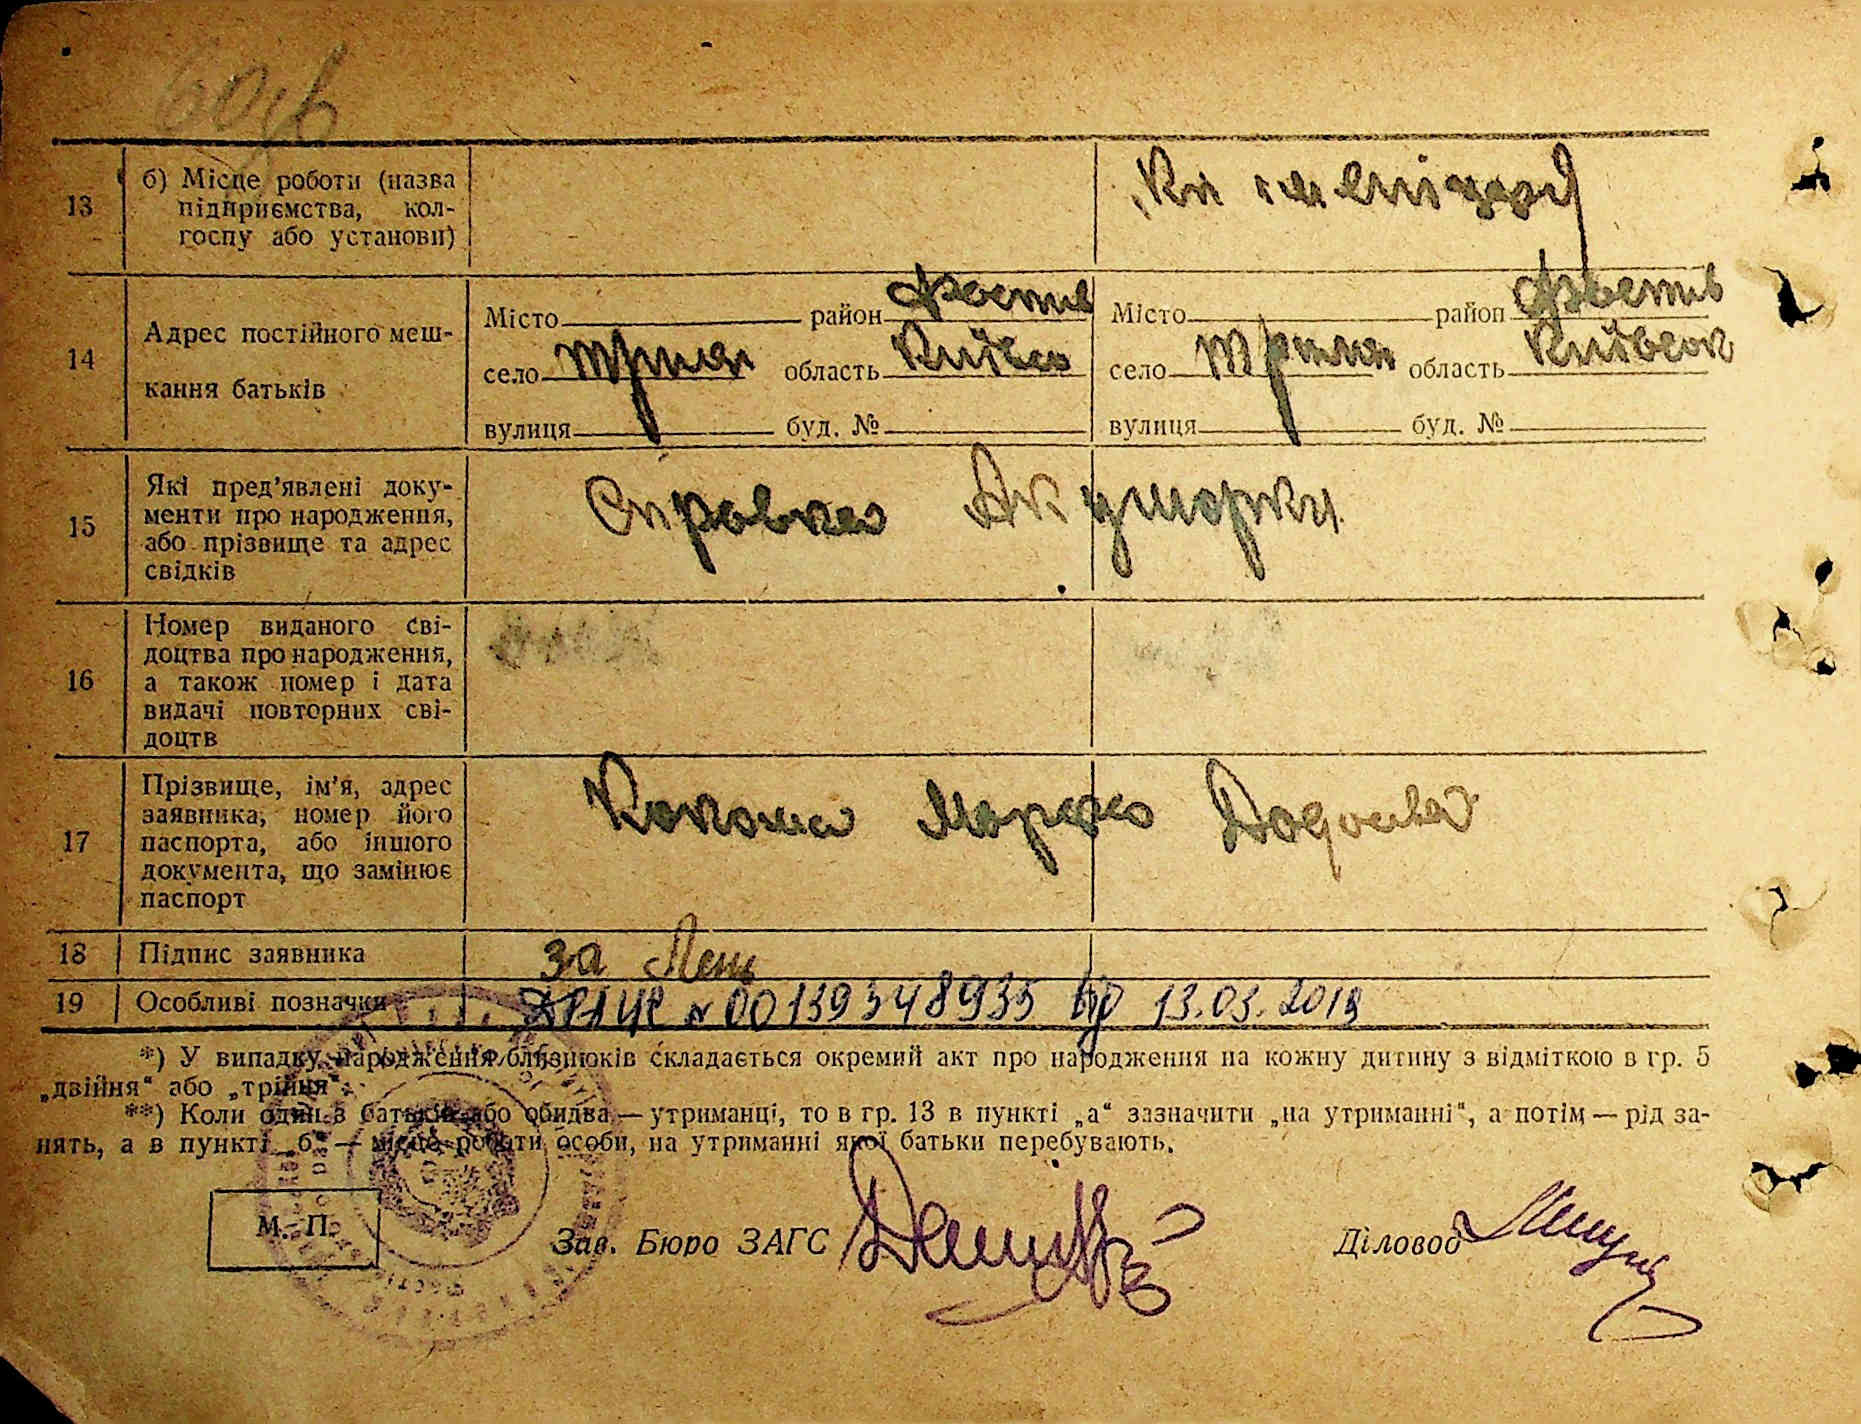 13
б) Місце роботи (назва
підприємства, кол-
госпу або установи)
14
Адрес постійного меш-
кання батьків
Місто район Фастів
село область Київск
вулиця буд. №
Місто район Фастів
село область Київськ
вулиця буд. №
15
Які пред’явлені доку-
менти про народження,
або прізвище та адрес
свідків
Справка Акушерки
16
Номер виданого сві-
доцтва про народження,
а також номер і дата
видачі повторних сві-
доцтв
17
Прізвище, ім’я, адрес
заявника, номер його
паспорта, або іншого
документа, що замінює
паспорт
18
Підпис заявника
за
19
Особливі позначки
№ 00139348935 від 13.03.2019
*) У випадку народження близнюків складається окремий акт про народження на кожну дитину з відміткою в гр. 5
„двійня“ або „трійня“.
**) Коли один з батьків або обидва — утриманці, то в гр. 13 в пункті „а“ зазначити „на утриманні“, а потім — рід за-
нять, а в пункті „б“ — місце роботи особи, на утриманні якої батьки перебувають.
М. П.
Зав. Бюро ЗАГС
Діловод